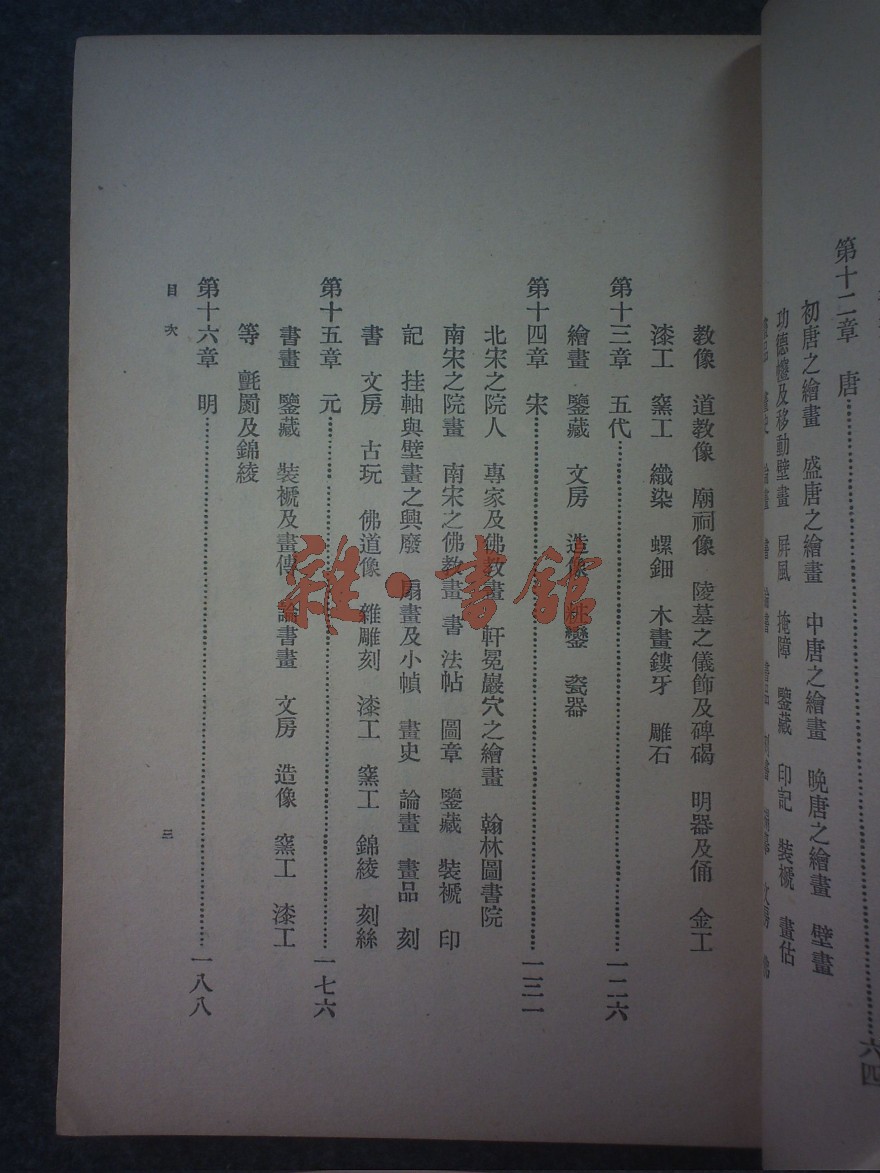 第十二章　唐……六四
初唐之繪畫　盛唐之繪畫　中唐之繪畫　晚唐之繪畫　壁畫
功德幢及移動壁畫　屏風　掩障　鑒藏　印記　裝褫　畫估
教像　道教像　廟祠像　陵墓之儀飾及碑碣　明器及俑　金工
漆工　窯工　織染　螺鈿　木畫鏤牙　雕石
第十三章　五代……一二六
繪畫　鑒藏　文房　造像　　瓷器
第十四章　宋……一三一
北宋之院人　專家及佛教畫　軒冕巖穴之繪畫　翰林圖書院
南宋之院畫　南宋之佛教畫　書　法帖　圖章　鑒藏　裝褫　印
記　挂軸與壁畫之興廢　扇畫及小幀　畫史　論畫　畫品　刻
書　文房　古玩　佛道像　雜雕刻　漆工　窯工　錦綾　刻絲
第十五章　元……一七六
書畫　鑒藏　裝褫及畫傳　論書畫　文房　造像　窯工　漆工
等　氈罽及錦綾
第十六章　明……一八八
目次
三
雜·書館